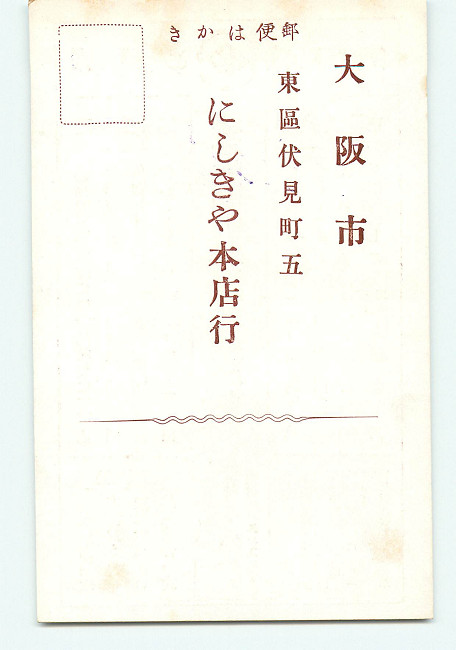 郵便はかき
大阪市
東區伏見町五
にしきや本店行